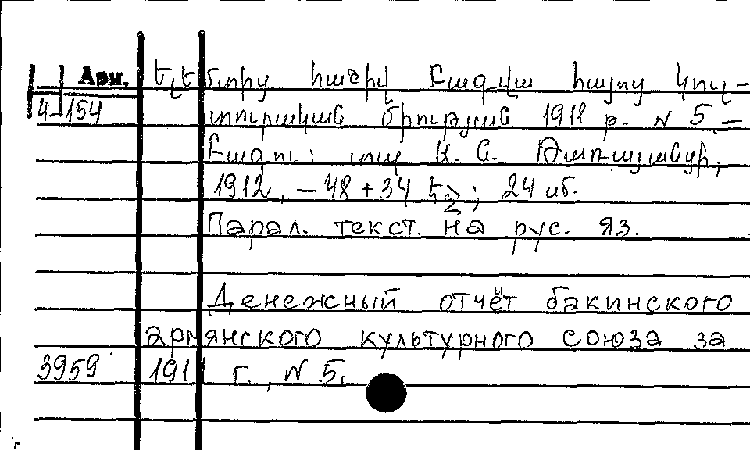 Арм. Ելեւմտից հաշիվ Բագվա հայոց կուլ-
4-154 տուրական միության 1911 թ. N 5.—
Բագու: տպ
1912, – 48 + 34 էջ; 24 սմ.
Парал. текст на рус. яз.
Денежный отчёт бакинского
армянского культурного союза за
3959 1911 г., N 5.